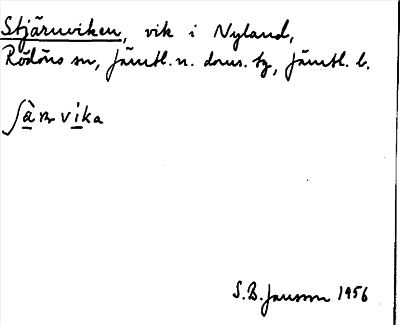 Stjärnviken, vik i Nyland,
Rödöns sn, Jämtl. n. doms. tg, Jämtl. l.
ʃà̱rnvi̱ka
S. B. Jansson 1956